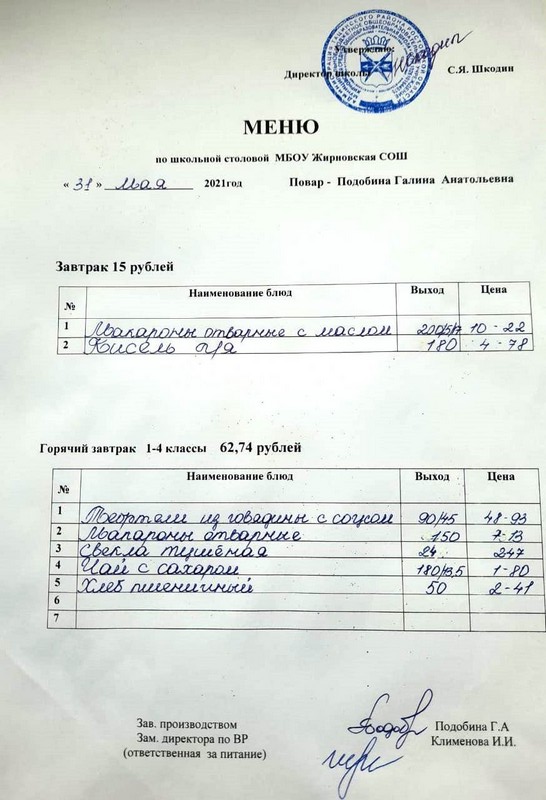 Утверждаю:
Директор школы С.Я. Шкодин
МЕНЮ
по школьной столовой МБОУ Жирновская СОШ
« 31 » мая 2021год Повар - Подобина Галина Анатольевна
Завтрак 15 рублей
№ Наименование блюд Выход Цена
1 Макароны отварные с маслом 200/5/7 10-22
2 Кисель п/я 180 4-78
Горячий завтрак 1-4 классы 62,74 рублей
№ Наименование блюд Выход Цена
1 Тефтели из говядины с соусом 90/45 48-93
2 Макароны отварные 150 7-13
3 Свекла тушёная 24 247
4 Чай с сахаром 180/13,5 1-80
5 Хлеб пшеничный 50 2-41
6
7
Зав. производством Подобина Г.А
Зам. директора по ВР Клименова И.И.
(ответственная за питание)